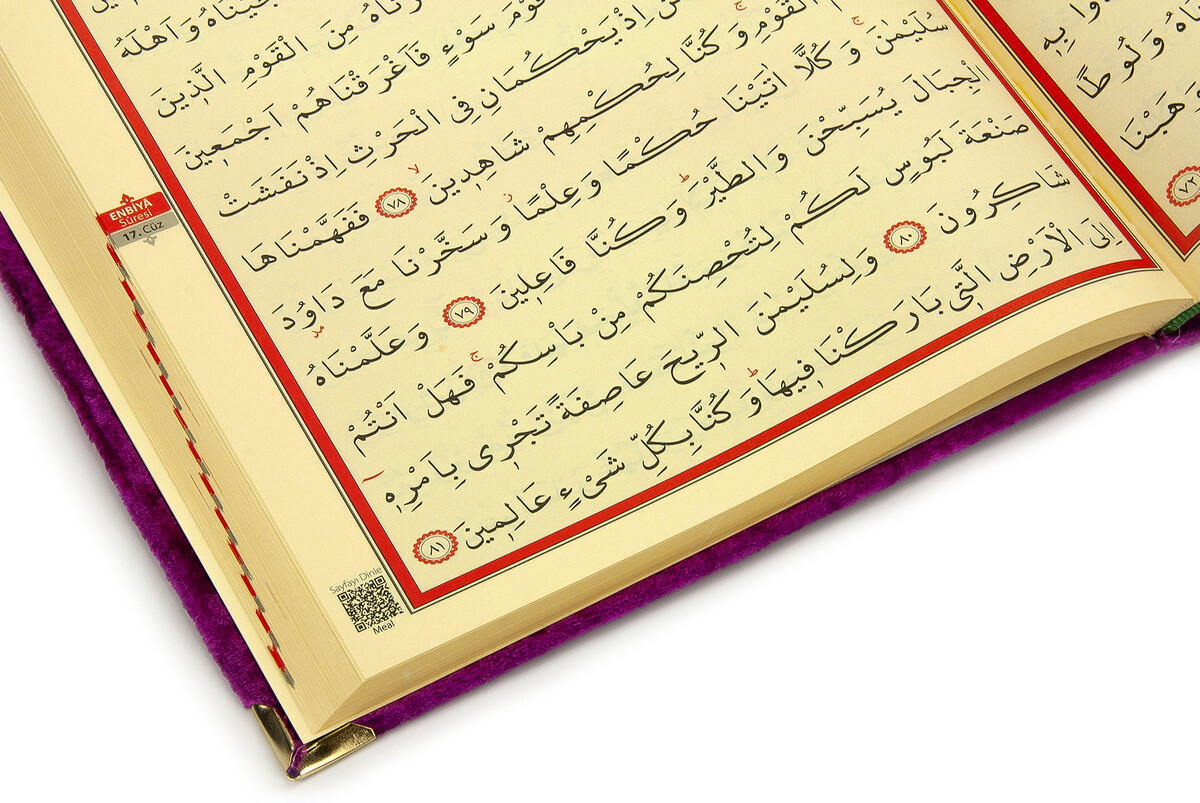 جَيْنَاهُ وَاَهْلَهُ
نَاهُ مِنَ الْقَوْمِ الَّذٖينَ
قَوْمَ سَوْءٍ فَاَغْرَقْنَاهُمْ اَجْمَعٖينَ
اِذْ يَحْكُمَانِ فِى الْحَرْثِ اِذْ نَفَشَتْ
الْقَوْمِ وَكُنَّا لِحُكْمِهِمْ شَاهِدٖينَ ﴿٧٨﴾ فَفَهَّمْنَاهَا
سُلَيْمٰنَ وَكُلًّا اٰتَيْنَا حُكْمًا وَعِلْمًا وَسَخَّرْنَا مَعَ دَاوُدَ
الْجِبَالَ يُسَبِّحْنَ وَالطَّيْرَ وَكُنَّا فَاعِلٖينَ ﴿٧٩﴾ وَعَلَّمْنَاهُ
صَنْعَةَ لَبُوسٍ لَكُمْ لِتُحْصِنَكُمْ مِنْ بَاْسِكُمْ فَهَلْ اَنْتُمْ
شَاكِرُونَ ﴿٨٠﴾ وَلِسُلَيْمٰنَ الرّٖيحَ عَاصِفَةً تَجْرٖى بِاَمْرِهٖ
اِلَى الْاَرْضِ الَّتٖى بَارَكْنَا فٖيهَا وَكُنَّا بِكُلِّ شَىْءٍ عَالِمٖينَ ﴿٨١﴾
ENBİYÂ
Sûresi
17. Cüz
Sayfayı Dinle
Meal
بِهٖ
وَلُوطًا
وَهَبْنَا
﴿٧٢﴾